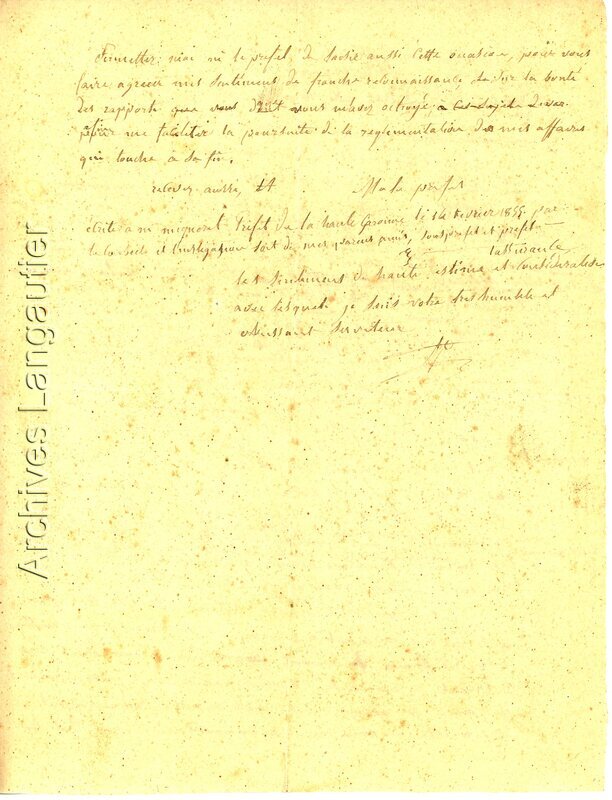 Permettez moi m le prefet, de saisir aussi cette occasion, pour vous
faire agréer mes sentiment de franche reconnaissance, sur la bonté
Des rapports que vous m'avez octroyé
pour me faciliter la poursuite de la reglementation de mes affaires
qui touche a sa fin.
recevez aussi, M le prefet
ecrite a m prefet de la haute Garonne le 14 fevrier 1855 par
et soit de mes amis, sousprefet et prefet
lassurance
les sentiment de haute estime et consideration
avec lesquels je suis votre tres humble et
obeissant serviteur
Archives Langautier